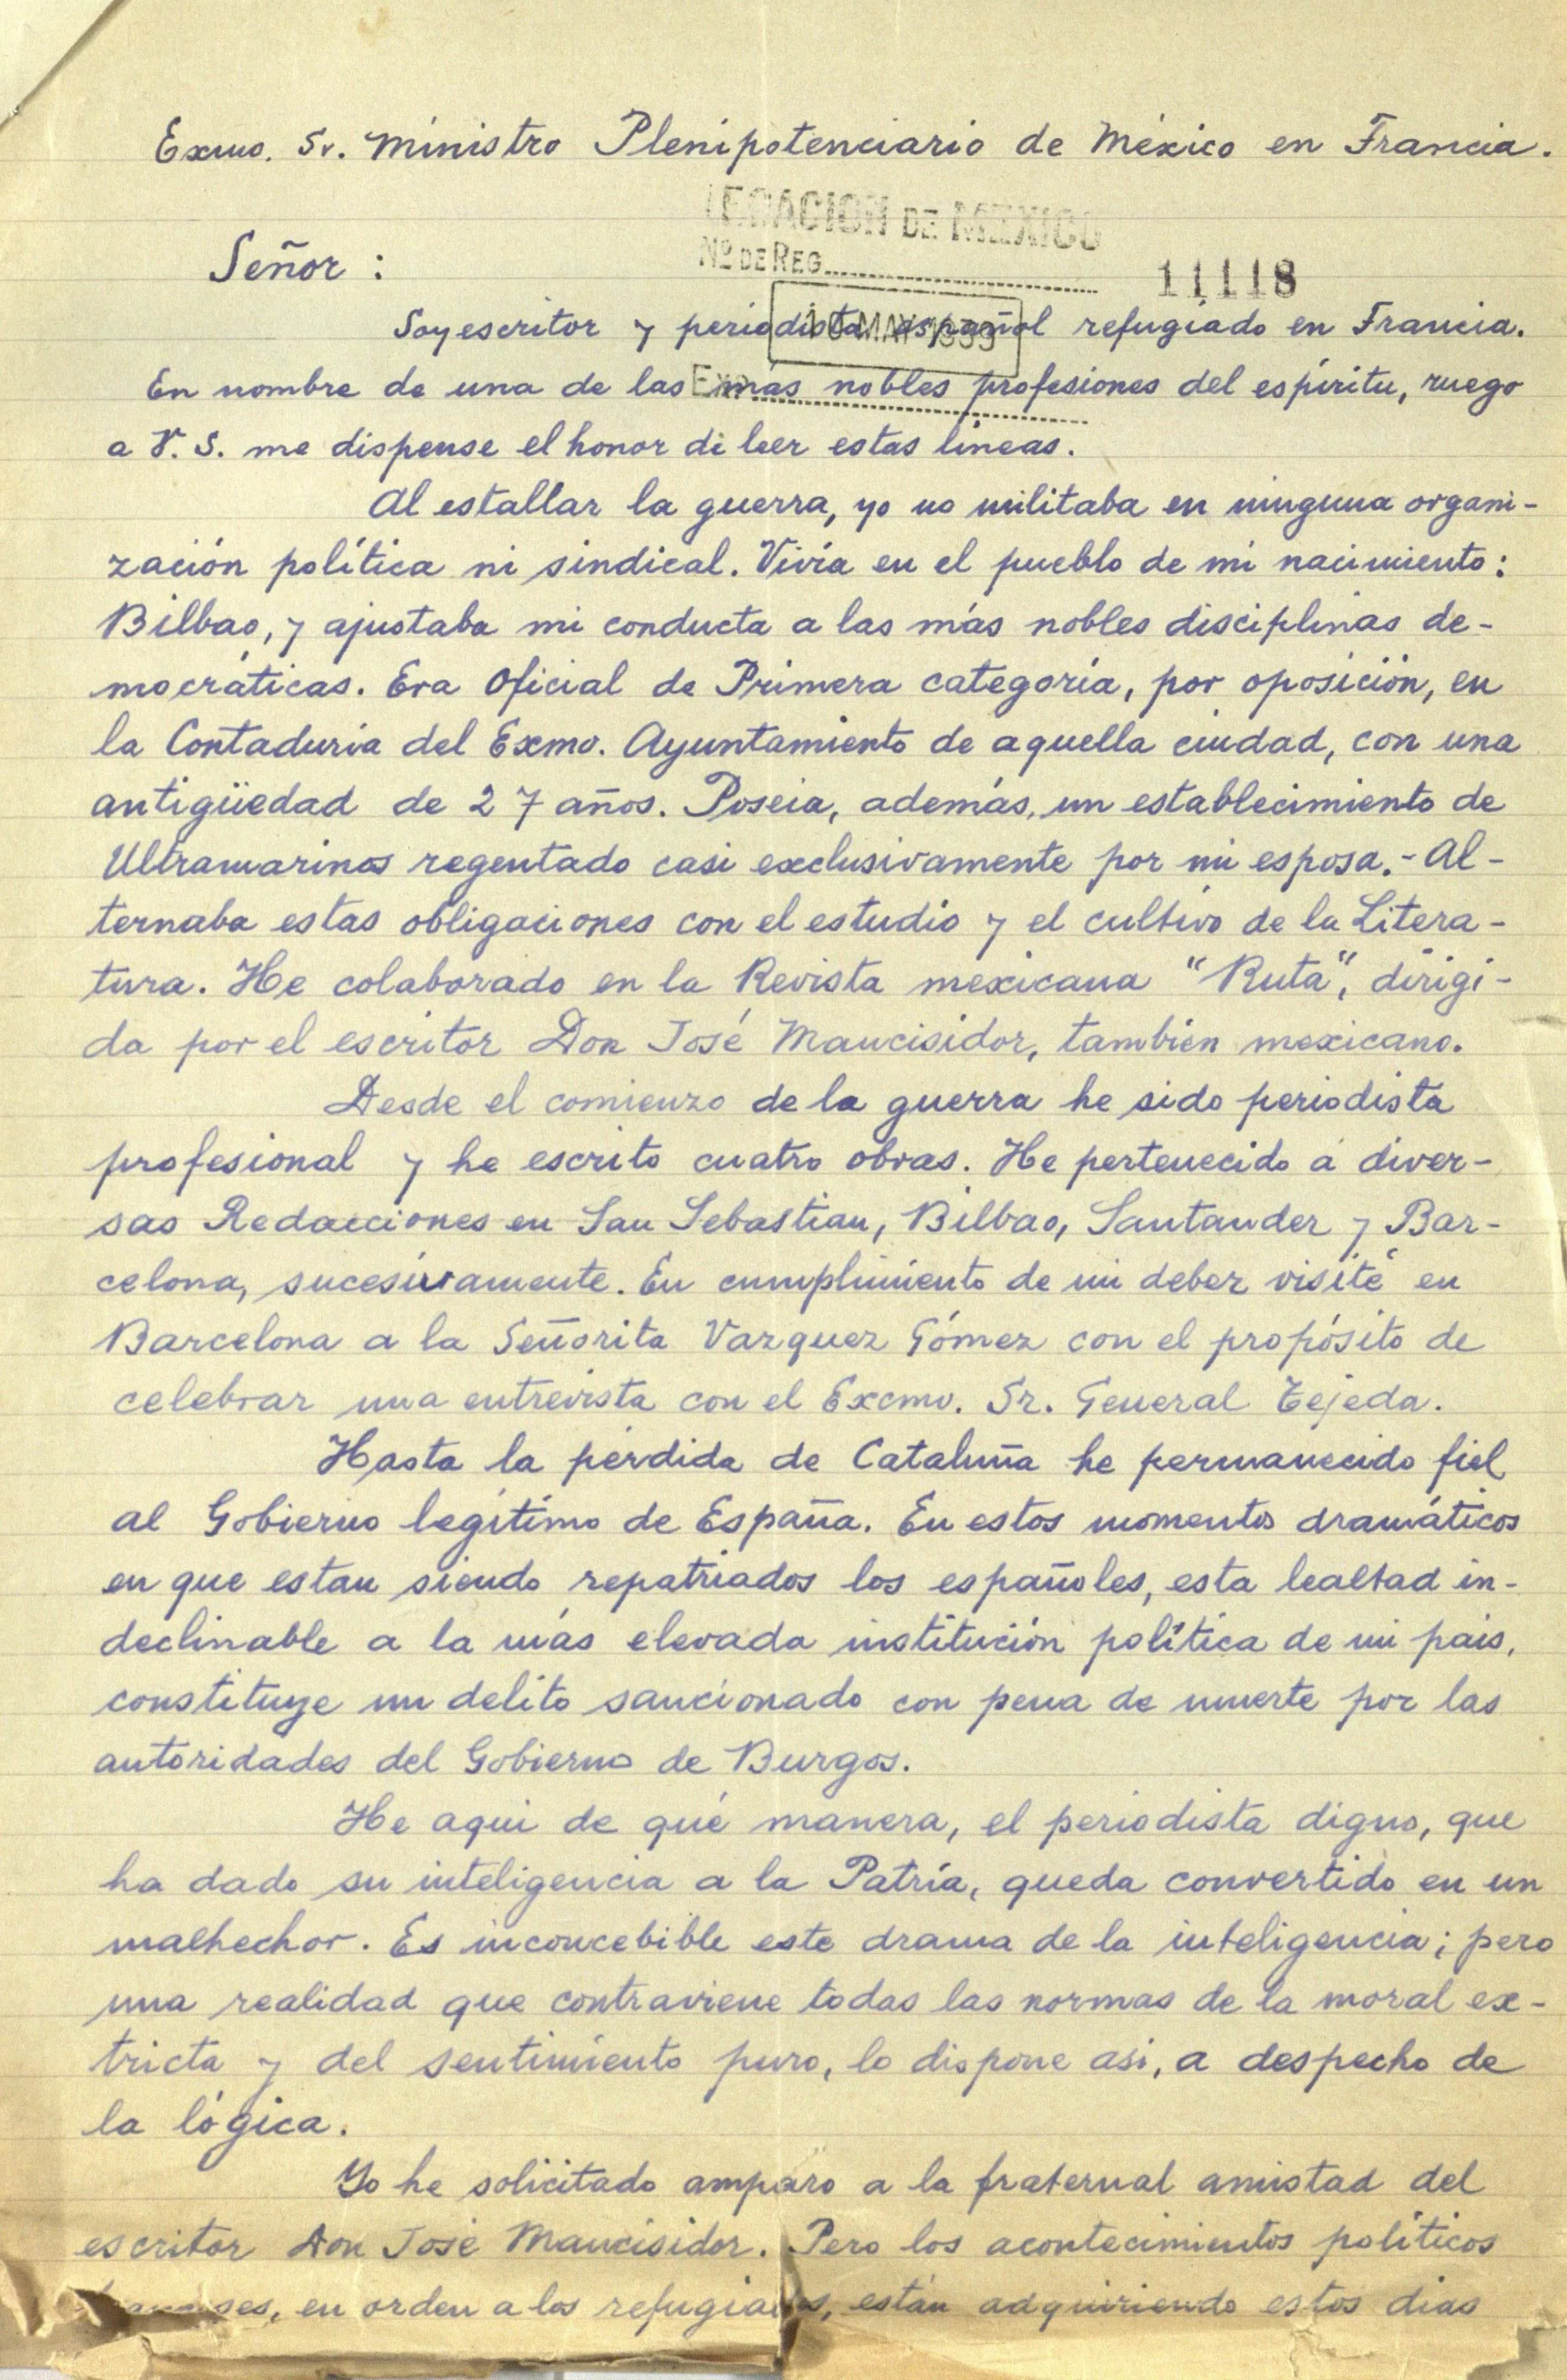 Exmo. Sr. Ministro Plenipotenciario de México en Francia.
LEGACION DE MEXICO
Nº DE REG
11118
Señor:
MAY 1939
Soy escritor y periodista español refugiado en Francia.
En nombre de una de las más nobles profesiones del espíritu, ruego
a V. S. me dispense el honor de leer estas líneas.
Al estallar la guerra, yo no militaba en ninguna organi-
zación política ni sindical. Vivía en el pueblo de mi nacimiento:
Bilbao, y ajustaba mi conducta a las más nobles disciplinas de-
mocráticas. Era Oficial de Primera categoría, por oposición, en
la Contaduría del Exmo. Ayuntamiento de aquella ciudad, con una
antigüedad de 27 años. Poseia, además, un establecimiento de
Ultramarinos regentado casi exclusivamente por mi esposa.- Al-
ternaba estas obligaciones con el estudio y el cultivo de la Litera-
tura. He colaborado en la Revista mexicana "Ruta", dirigi-
da por el escritor Don José Mancisidor, también mexicano.
Desde el comienzo de la guerra he sido periodista
profesional y he escrito cuatro obras. He pertenecido a diver-
sas Redacciones en San Sebastian, Bilbao, Santander y Bar-
celona, sucesivamente. En cumplimiento de mi deber visité en
Barcelona a la Señorita Vazquez Gómez con el propósito de
celebrar una entrevista con el Excmo. Sr. General Tejeda.
Hasta la pérdida de Cataluña he permanecido fiel
al Gobierno legítimo de España. En estos momentos dramáticos
en que estan siendo repatriados los españoles, esta lealtad in-
declinable a la más elevada institución política de mi pais,
constituye un delito sancionado con pena de muerte por las
autoridades del Gobierno de Burgos.
He aqui de qué manera, el periodista digno, que
ha dado su inteligencia a la Patria, queda convertido en un
malhechor. Es inconcebible este drama de la inteligencia; pero
una realidad que contraviene todas las normas de la moral ex-
tricta y del sentimiento puro, lo dispone asi, a despecho de
la lógica.
Yo he solicitado amparo a la fraternal amistad del
escritor Don José Mancisidor. Pero los acontecimientos políticos
en orden a los refugiados, están adquiriendo estos dias